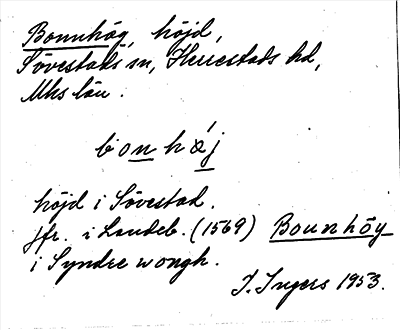 Bonnhög, höjd,
Sövestads sn, Herrestads hd,
Mhs län.
bonhǿj
höjd i Sövestad.
jfr. i Landeb. (1569) Bounhöy
i Syndre wongh.
I. Ingers 1953.